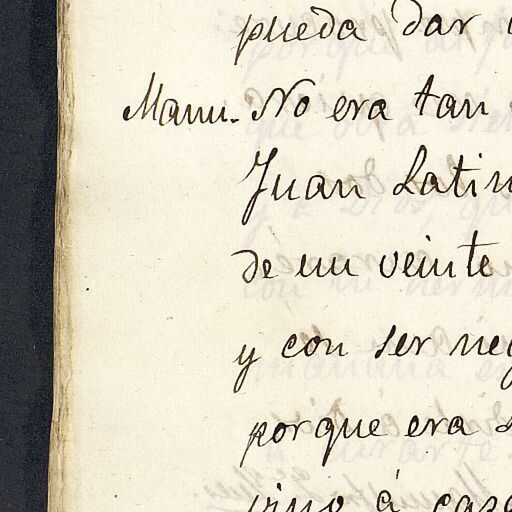 pueda dar
Manu. No era tan
Juan Latin
de un veinte
y con ser neg
porque era
vino á casa